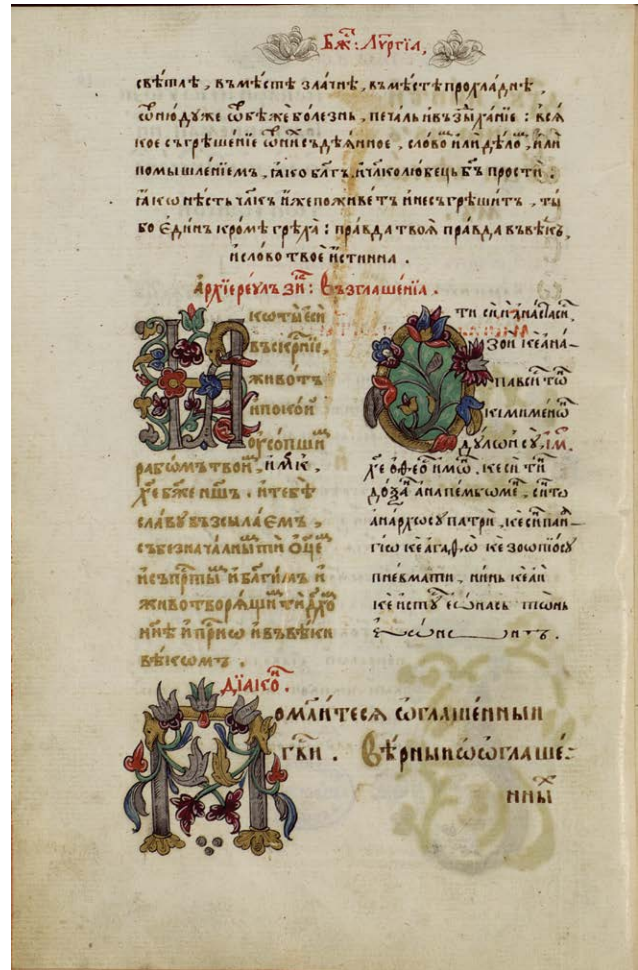 Бж҃: Лѵргїа,
свѣтлѣ, въмѣстѣ злачнѣ, въмѣстѣ прохладнѣ,
ѿнюдуже ѿбѣже болезнь, печаль ивъздыханїе: вся
кое съгрѣшенїе ѿ съдѣянное, слово или дѣло, или
помышленїемъ, ꙗко бл҃гъ, ичл҃колюбець бг҃ъ прости.
ꙗкѡ нѣсть чл҃къ иже поживетъ инесъгрѣшитъ, ты
бо единъ кромѣ грѣха: правда твоя правда въвѣкъ,
ислово твое истинна.
Архїереи възглашенїа.
Ꙗкѡ ты еси
въскрн҃їе,
животъ
ипокои
оусопши
рабѡмъ твои,
хе҃ бж҃е нш҃ъ. итебѣ
славу възсылаемъ,
събезначалны ти оц҃е
и бл҃гимъ и
животворящи ти дх҃о
нн҃ѣ и прн҃ѡ ивъвѣки
вѣкомъ.
Ѻти си и анастаси
зои ке ана
павси тѡ
кимименѡ
дулѡн су,
хе҃ ѻ ѳеѻ имѡ, ке си ти
доѯа анапембѡме, си тѡ
анархѡ су патри, ке си пан
гїѡ ке агаѳѡ ке зоѡпїѡ су
пневмати, нинь ке аи
ке ис ту еѡнась тѡнь
еѡнѡнь
Дїако.
Помлитеся ѡглашеннын
гв҃и. Вѣрнын ѡ ѡглаше
нны